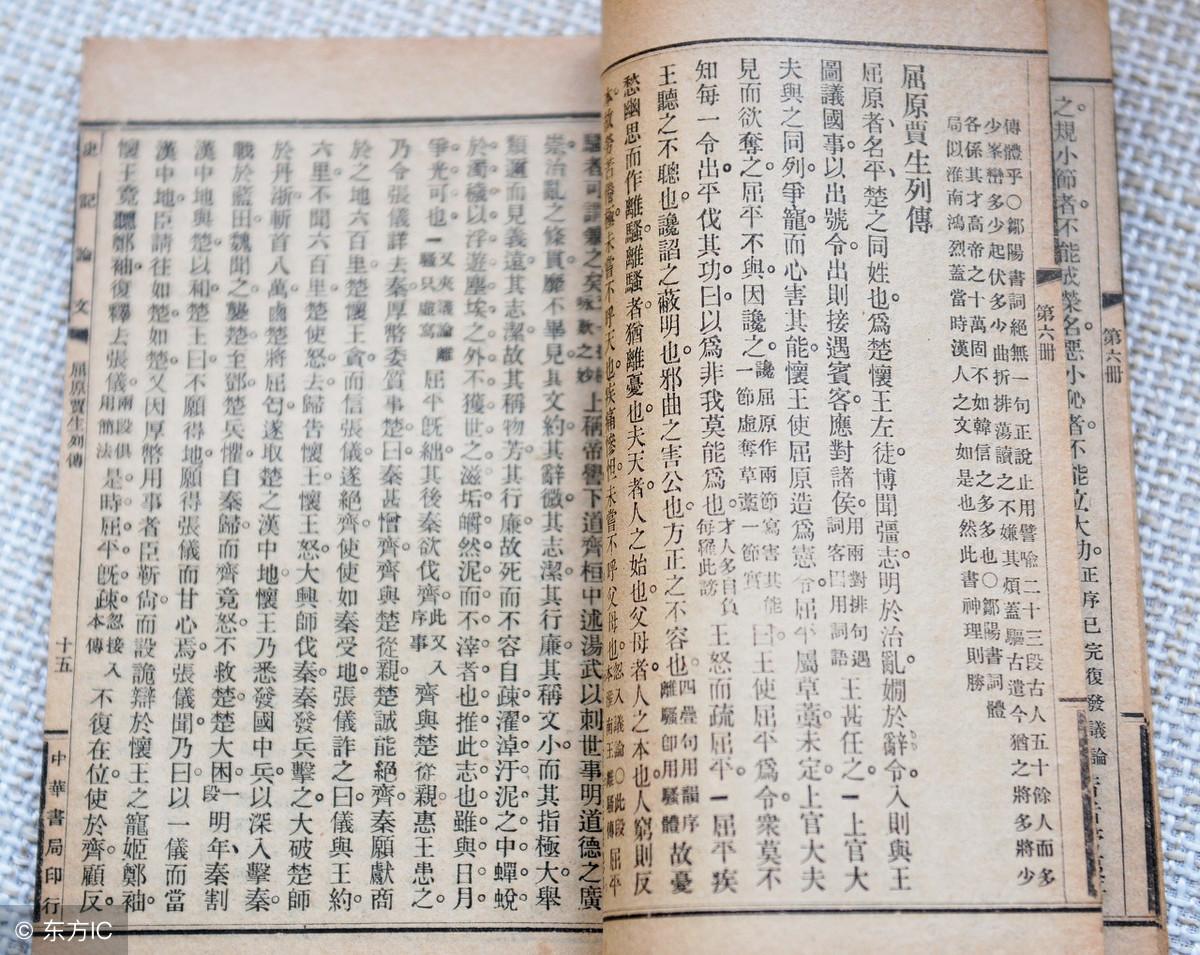 第六冊
之規小節者不能成榮名。惡小恥者不能立大功。正序已完復發議論
第六冊
傳體乎○鄒陽書詞絕無一句正說止用譬喻二十三段古人五十餘人而多
少峯巒多少起伏多少曲折排蕩讀之不嫌其煩蓋驅古遣今猶之將多將少
各係其才高帝之十萬固不如韓信之多多也○鄒陽書詞體
局以淮南鴻烈蓋當時漢人之文如是也然此書神理則勝
屈原賈生列傳
屈原者、名平、楚之同姓也。爲楚懷王左徒博聞彊志。明於治亂。嫺於辭令。入則與王
圖議國事。以出號令。出則接遇賓客。應對諸侯。用兩對排句遇詞客四用詞語王甚任之。一上官大
夫與之同列。爭寵而心害其能。懷王使屈原造爲憲令。屈平屬草藁未定。上官大夫
見而欲奪之。屈平不與。因讒之。讒屈原作兩節寫害其能一節虛奪草藁一節實曰王使屈平爲令。衆莫不
知每一令出。平伐其功。曰以爲非我莫能爲也。才人多自負每罹此謗王怒而疏屈平。一屈平疾
王聽之不聰也。讒諂之蔽明也。邪曲之害公也。方正之不容也。四疊句用韻序離騷卽用騷體故憂
愁幽思而作離騷。離騷者猶離憂也。夫天者人之始也。父母者人之本也。人窮則反
本。故勞苦倦極。未嘗不呼天也。疾痛慘怛。未嘗不呼父母也。忽入議論○此段本淮南王離騷傳屈平
上稱帝嚳下道齊桓中述湯武以刺世事明道德之廣
崇治亂之條貫靡不畢見。其文約。其辭微。其志潔。其行廉。其稱文小而其指極大。舉
類邇而見義遠。其志潔。故其稱物芳。其行廉。故死而不容自疎。濯淖汙泥之中。蟬蛻
於濁穢。以浮遊塵埃之外。不獲世之滋垢。皭然泥而不滓者也。推此志也。雖與日月
爭光可也。一又夾議論離騷只虛寫屈平旣絀其後秦欲伐齊此又入序事齊與楚從親。惠王患之。
乃令張儀詳去秦厚幣委質事楚。曰秦甚憎齊齊與楚從親。楚誠能絕齊秦願獻商
於之地六百里。楚懷王貪而信張儀遂絕齊。使使如秦受地張儀詐之。曰儀與王約
六里。不聞六百里。楚使怒去歸告懷王。懷王怒大興師伐秦秦發兵擊之。大破楚師
於丹淅斬首八萬虜楚將屈匄遂取楚之漢中地。懷王乃悉發國中兵。以深入擊秦。
戰於藍田。魏聞之襲楚至鄧。楚兵懼自秦歸而齊竟怒。不救楚。楚大困。一段明年、秦割
漢中地與楚以和楚王曰不願得地願得張儀而甘心焉張儀聞乃曰以一儀而當
漢中地臣請往如楚如楚又因厚幣用事者臣靳尙而設詭辯於懷王之寵姬鄭袖。
懷王竟聽鄭袖復釋去張儀。兩段俱用簡法是時屈平。旣疎。忽接入本傳不復在位。使於齊。顧反。
史記論文
屈原賈生列傳
十五
中華書局印行
© 东方IC